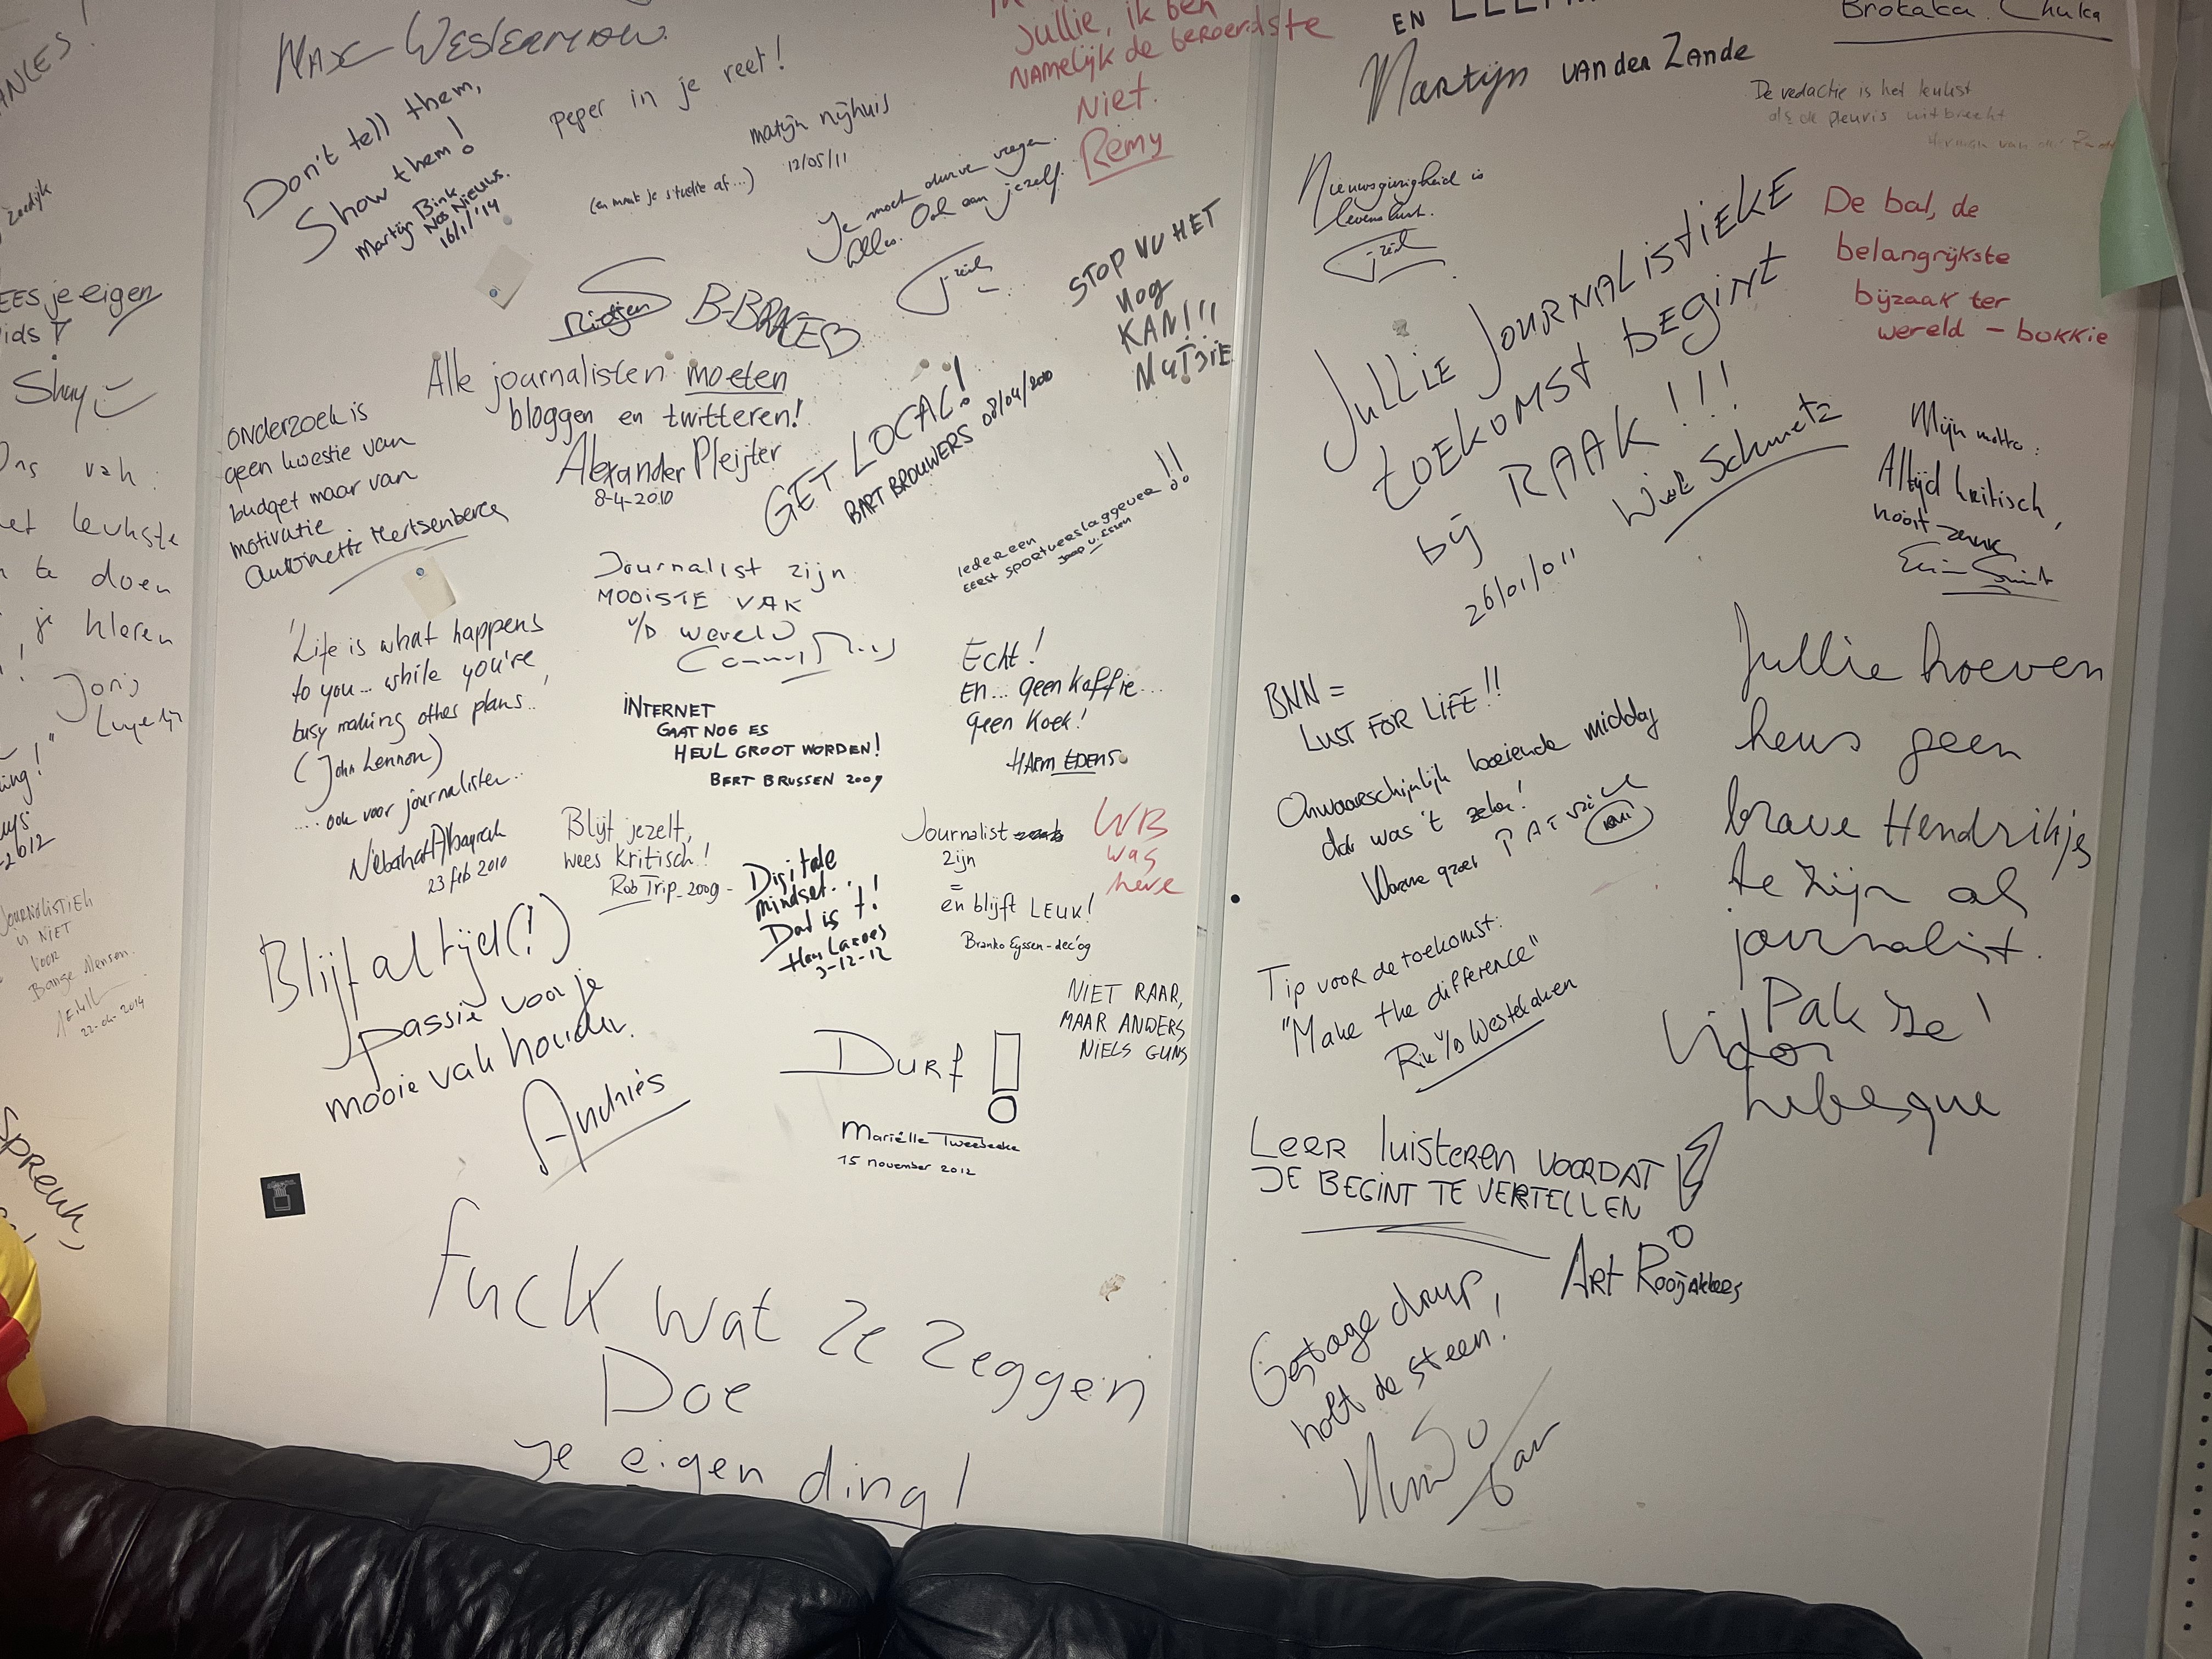 ANCES!
Zeedijk
EES je eigen
ids!
Shay
Ons vak:
et leukste
te doen
je kleren
Joris
Luyendijk
ing!"
2012
JOURNALISTIEK
is NIET
voor
Bange Mensen.
22-04-2014
SPREUK,
MAX WESTERMAN
Don't tell them,
Show them!
Martijn Bink
NOS NIEUWS.
16/1/'14
peper in je reet!
matijn nijhuis
12/05/11
(en maak je studie af...)
Jullie, ik ben
NAMelijk de beroerdste
Niet.
Remy
Je moet durven vragen.
Alles. Ook aan jezelf.
B-BRAVE
STOP NU HET
nog
KAN!!!
MUTSJE
Alle journalisten moeten
bloggen en twitteren!
Alexander Pleijter
8-4-2010
GET LOCAL!
BART BROUWERS 08/04/2010
onderzoek is
geen kwestie van
budget maar van
motivatie
Antoinette Hertsenberg
iedereen
EERST SPORTVERSLAGGEVER!!
Joop v. Essen
Journalist zijn
MOOISTE VAK
v/D wereld
'Life is what happens
to you... while you're
busy making other plans..'
(John Lennon)
.... ook voor journalisten..
Nebahat Albayrak
23 feb 2010
INTERNET
GAAT NOG ES
HEUL GROOT WORDEN!
BERT BRUSSEN 2009
Echt!
En... geen koffie...
geen koek!
HARM EDENS
Blijf jezelf,
wees kritisch!
Rob Trip-2009-
Digitale
mindset..
Dat is 't!
Hans Laroes
3-12-12
Journalist
zijn
=
en blijft LEUK!
Branko Eyssen-dec'09
WB
was
here
Blijf altijd(!)
passie voor je
mooie vak houden.
Andries
NIET RAAR,
MAAR ANDERS
NIELS GUNS
DURF!
Mariëlle Tweebeeke
15 november 2012
Fuck wat ze zeggen
Doe
je eigen ding!
EN
Martijn van der Zande
Brokaka. Chuka
De redactie is het leukst
als de pleuris uitbreekt
Herman van der Zandt
Nieuwsgierigheid is
levenslust.
JULLIE JOURNALISTIEKE
TOEKOMST BEGINT
bij RAAK!!!
Wiek Schmetz
26/01/011
De bal, de
belangrijkste
bijzaak ter
wereld - bokkie
Mijn motto:
Altijd kritisch,
nooit zeuren
BNN =
LUST FOR LIFE!!
Onwaarschijnlijk boeiende middag
dat was 't zeker!
Warme groet PATRICK
Jullie hoeven
heus geen
brave Hendrikjes
te zijn als
journalist.
Pak ze!
Vidor
Lebesque
Tip voor de toekomst:
"Make the difference"
Rik v/d Westelaken
LEER luisteren VOORDAT
JE BEGINT TE VERTELLEN!
ART ROOIJAKKERS
Gestage drup,
holt de steen!